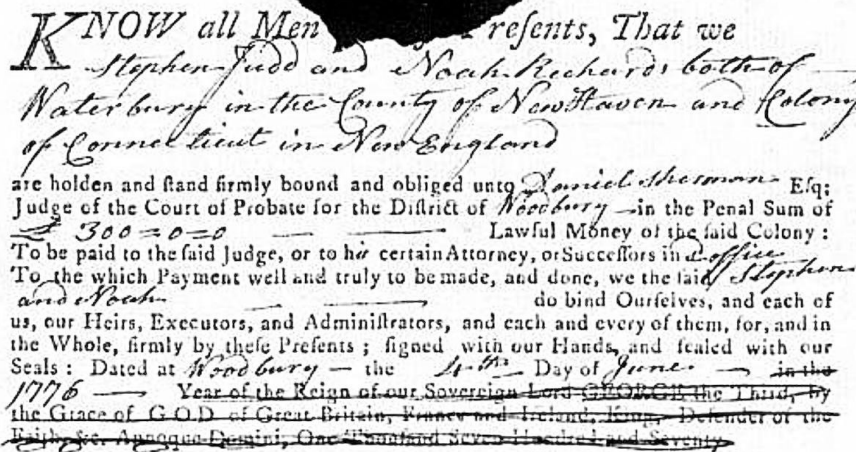 KNOW all Men Preſents, That we
Stephen Judd and Noah Richards both of
Waterbury in the County of New Haven and Colony
of Connecticut in New England
are holden and ſtand firmly bound and obliged unto Daniel Sherman Eſq:
Judge of the Court of Probate for the Diſtrict of Woodbury in the Penal Sum of
£ 300=0=0 — — Lawful Money of the ſaid Colony :
To be paid to the ſaid Judge, or to his certain Attorney, or Succeſſors in office
To the which Payment well and truly to be made, and done, we the ſaid Stephen
and Noah — — do bind Ourſelves, and each of
us, our Heirs, Executors, and Adminiſtrators, and each and every of them, for, and in
the Whole, firmly by theſe Preſents ; ſigned with our Hands, and ſealed with our
Seals : Dated at Woodbury — the 4th Day of June — in the
1776 — Year of the Reign of our Sovereign Lord GEORGE the Third, by
the Grace of GOD of Great Britain, France and Ireland, King, Defender of the
Faith, &c. Annoque Domini, One Thouſand Seven Hundred and Seventy